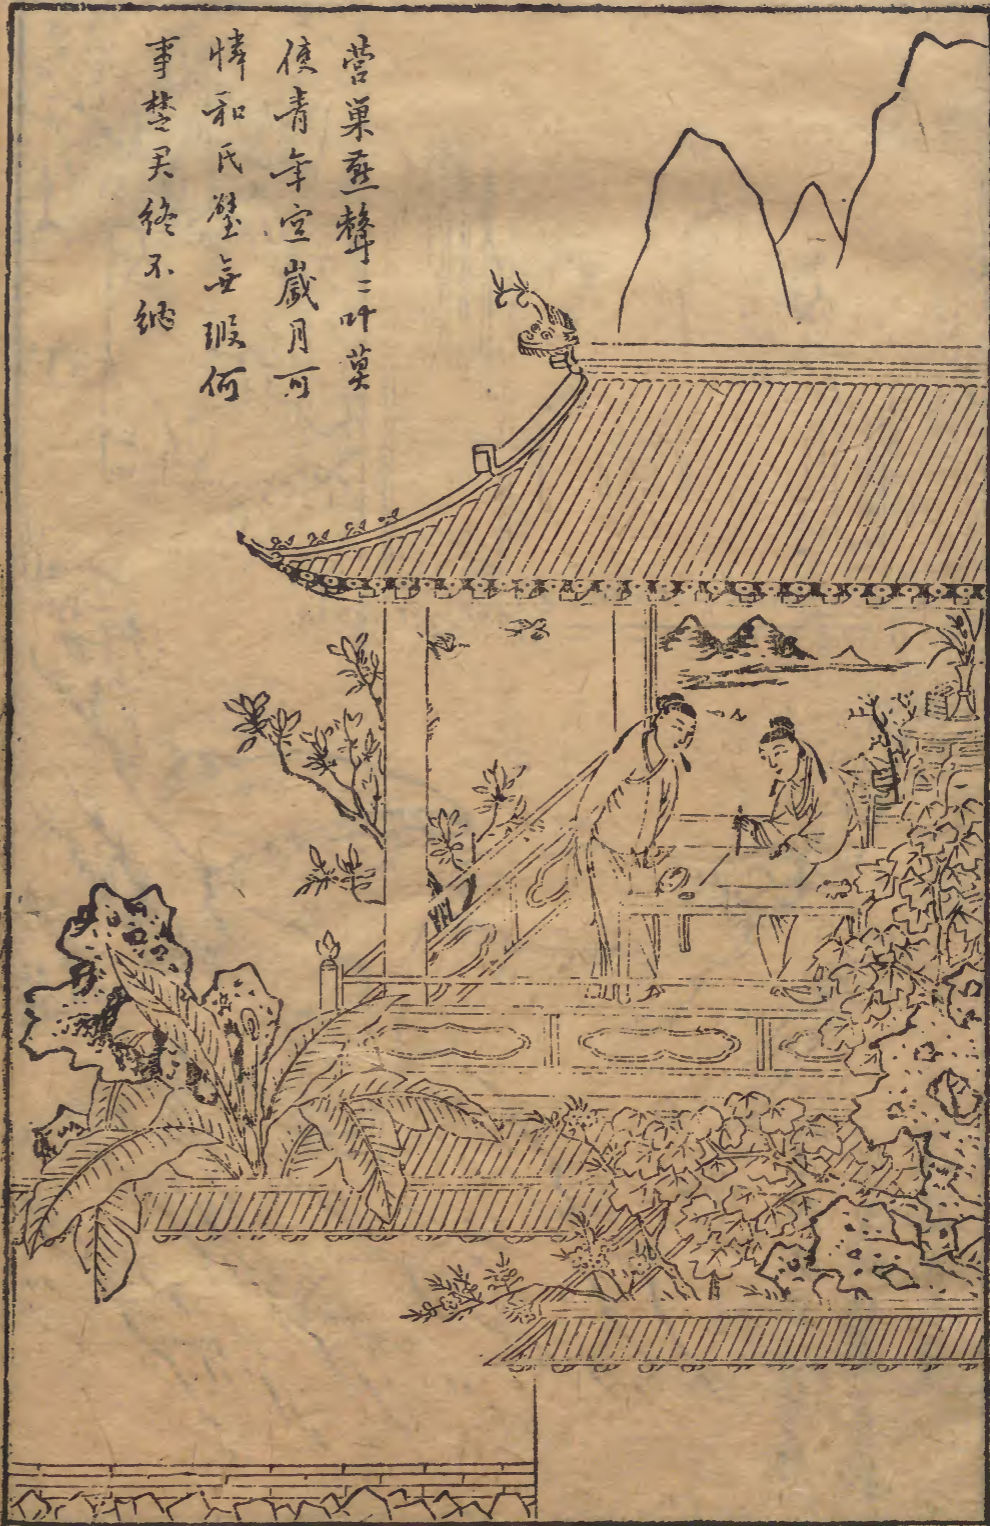 營巢燕聲〻叶莫
使青年空歲月可
憐和氏璧無瑕何
事楚君終不納